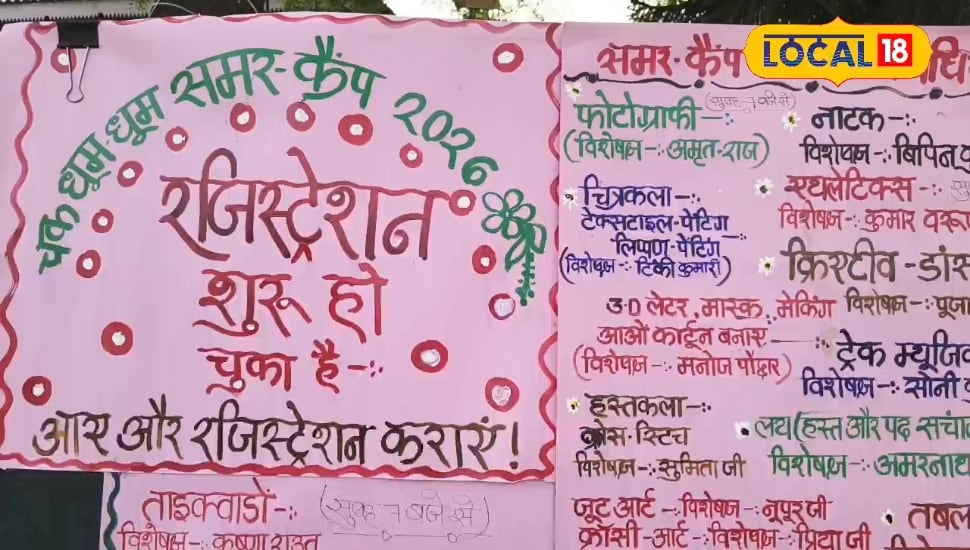 चक धूम-धूम समर-कैंप 2026
रजिस्ट्रेशन
शुरू हो
चुका है-:
आए और रजिस्ट्रेशन कराएं!
ताइक्वांडो-: (सुबह 7 बजे से)
विशेषज्ञ-: कृष्णा राउत
समर-कैंप
फोटोग्राफी-: (सुबह 7 बजे से)
(विशेषज्ञ-: अमृत-राज)
चित्रकला-:
टेक्सटाइल-पेंटिंग
लिप्पण-पेंटिंग-:
(विशेषज्ञ-: टिंकी कुमारी)
3-D लेटर, मास्क, मेकिंग
आओ कार्टून बनाए-:
(विशेषज्ञ-: मनोज पोद्दार)
हस्तकला-:
क्रोस-स्टिच
विशेषज्ञ-: सुमिता जी
जूट आर्ट-विशेषज्ञ-: नूपुर जी
क्रॉसी-आर्ट-: विशेषज्ञ-: प्रिया जी
नाटक-:
विशेषज्ञ-: बिपिन
एथलेटिक्स-:
विशेषज्ञ-: कुमार
क्रिएटीव-डांस
विशेषज्ञ-: पूजा
ट्रेक म्यूजिक
विशेषज्ञ-: सोनी
लय(हस्त और पद संचाल
विशेषज्ञ-: अमरनाथ
तबल
LOCAL 18